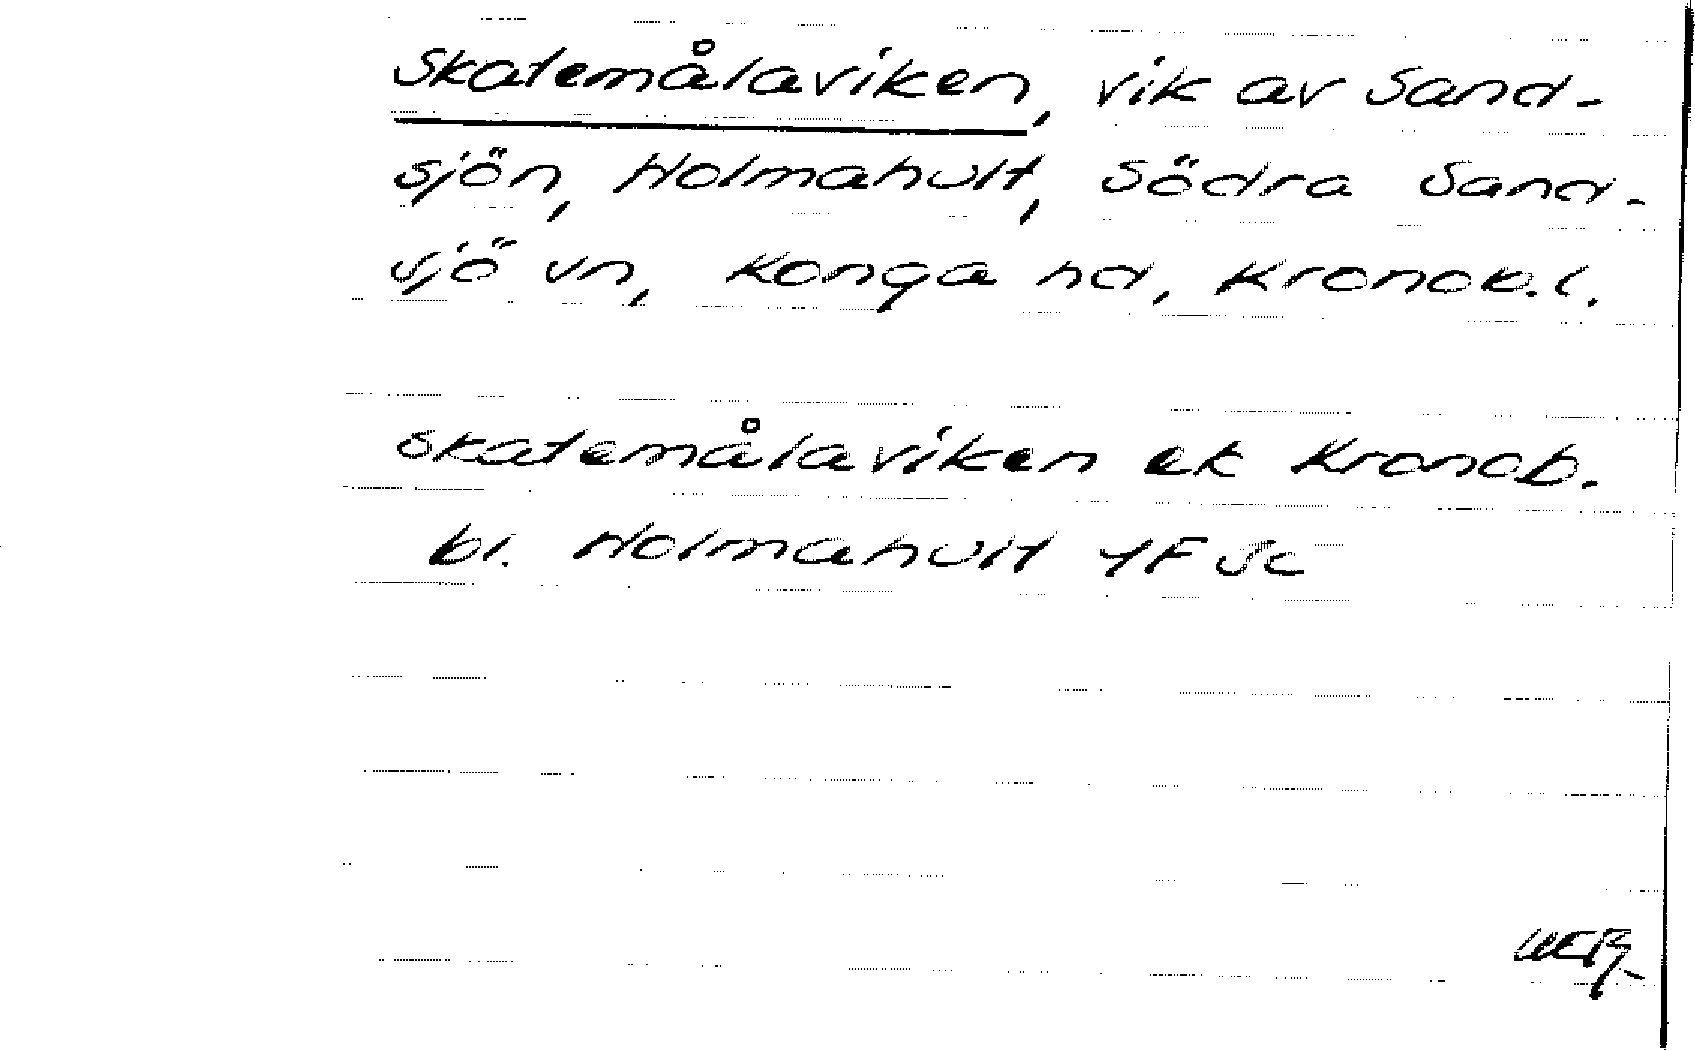 Skatemålaviken, vik av Sand-
sjön, Holmahult, Södra Sand-
sjö sn, Konga hd, Kronob.l.
Skatemålaviken ek Kronob.
bl. Holmahult 4F 5c